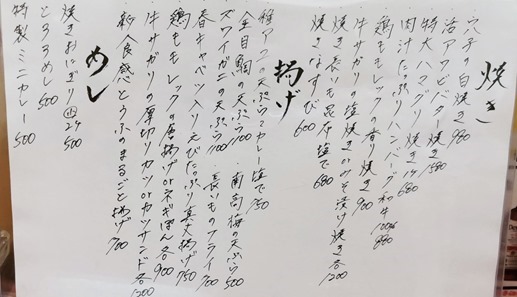 焼き
穴子の白焼き 980
活アワビバター焼き 1580
特大ハマグリ焼き 1ヶ 680
肉汁たっぷりハンバーグ 和牛100% 880
鶏モモレッグの香り焼き 900
牛サガリの塩焼き or みそ漬け焼き 各1200
焼き長いも 昆布塩で 680
焼きなすび 600
揚げ
稚アユの天ぷら カレー塩で 750
金目鯛の天ぷら 1100 南高梅の天ぷら 500
ズワイガニの天ぷら 1100 長いものフライ 700
春キャベツ入りえびたっぷり真丈揚げ 750
鶏モモレッグの唐揚げ or ネギぽん 各900
牛サガリの厚切りカツ or カツサンド 各1200
新食感とうふのまるごと揚げ 700
めし
焼きおにぎり 2ヶ 500
とろろめし 500
特製ミニカレー 500